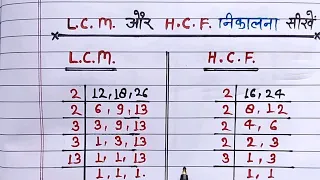 L.C.M. और H.C.F. निकालना सीखें
L.C.M.
2 | 12, 18, 26
2 | 6, 9, 13
3 | 3, 9, 13
3 | 1, 3, 13
13 | 1, 1, 13
1, 1, 1.
H.C.F.
2 | 16, 24
2 | 8, 12
2 | 4, 6
2 | 2, 3
3 | 1, 3
1, 1